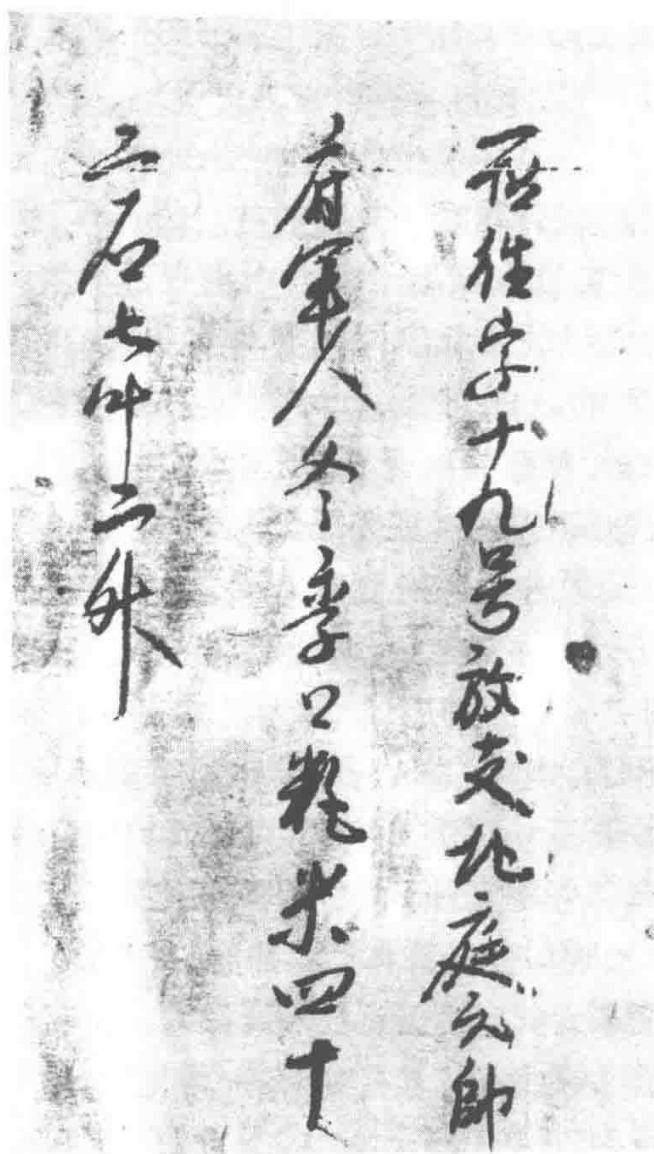 一帖徃字十九号放支北庭元帥
府軍人冬季口粮米四十
二石七斗二升